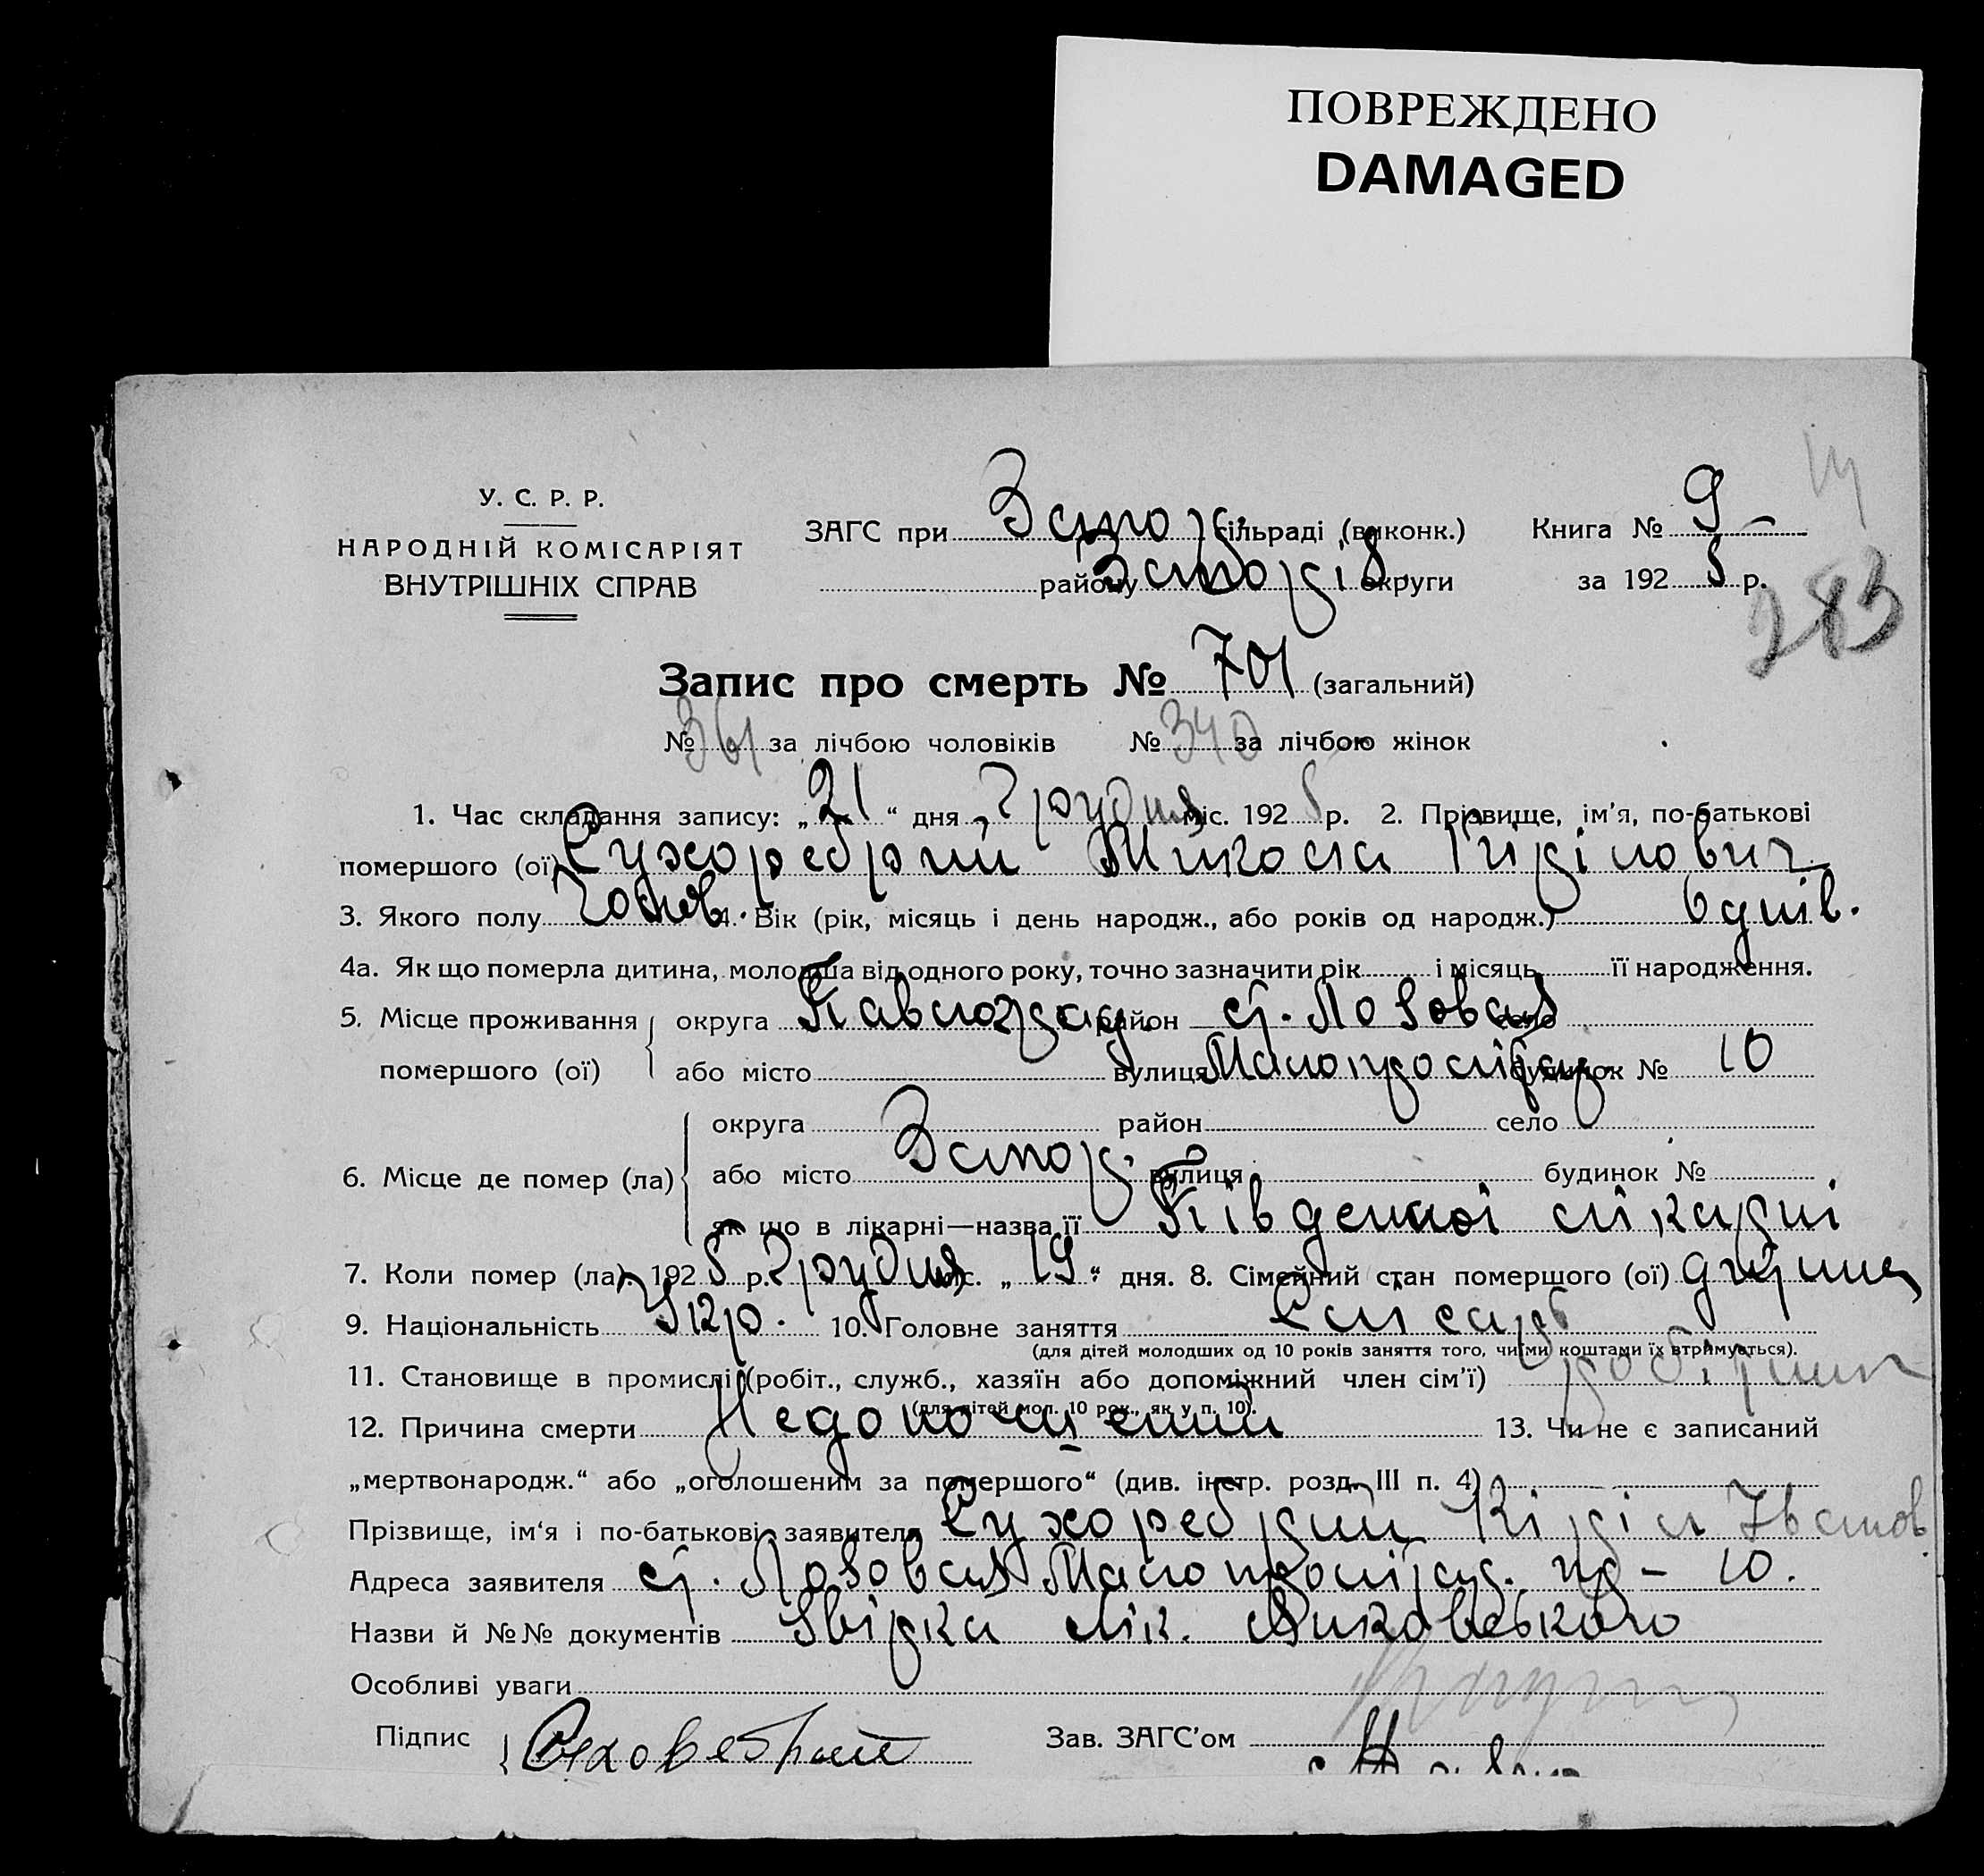 ПОВРЕЖДЕНО
DAMAGED
У. С. Р. Р.
НАРОДНІЙ КОМІСАРІЯТ
ВНУТРІШНІХ СПРАВ
ЗАГС при Запоріз. сільраді (виконк.)
району Запоріз. округи
Книга № 9
за 1925 р.
283
Запис про смерть № 701 (загальний)
№ 361 за лічбою чоловіків № 340 за лічбою жінок
1. Час складання запису: „21“ дня Грудня міс. 1925 р. 2. Прізвище, ім'я, по-батькові
помершого (ої) Сухоребрий Микола Кірілович
3. Якого полу Чолов. 4. Вік (рік, місяць і день народж., або років од народж.) 6 днів.
4а. Як що померла дитина, молодша від одного року, точно зазначити рік і місяць її народження.
5. Місце проживання помершого (ої) округа Павлоград. район ст. Лозовая село
або місто вулиця будинок № 10
6. Місце де помер (ла) округа район село
або місто Запоріж. вулиця будинок №
як що в лікарні—назва її Південної лікарні
7. Коли помер (ла) 1925 р. Грудня міс. „19“ дня. 8. Сімейний стан помершого (ої) дитина
9. Національність Укр. 10. Головне заняття Слісарь
(для дітей молодших од 10 років заняття того, чиїми коштами їх втримується).
11. Становище в промислі (робіт., служб., хазяїн або допоміжний член сім'ї) робітник
(для дітей мол. 10 рок., як у п. 10).
12. Причина смерти 13. Чи не є записаний
„мертвонародж.“ або „оголошеним за помершого“ (див. інстр. розд. III п. 4)
Прізвище, ім'я і по-батькові заявителя Сухоребрий Кіріл Іванов
Адреса заявителя ст. Лозовая 10.
Назви й №№ документів Звірка лік.
Особливі уваги
Підпис Зав. ЗАГС'ом